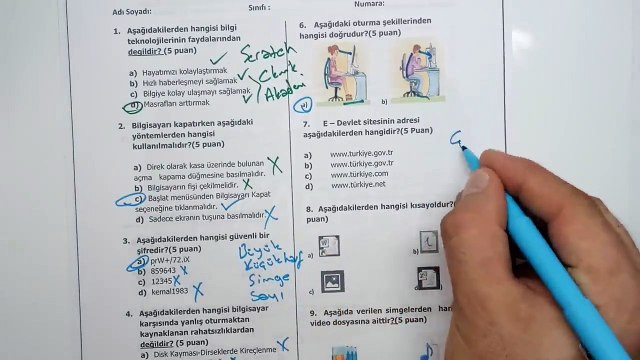 Adı Soyadı:
Sınıfı :
Numara:
1. Aşağıdakilerden hangisi bilgi
teknolojilerinin faydalarından
değildir? (5 puan)
a) Hayatımızı kolaylaştırmak
b) Hızlı haberleşmeyi sağlamak
c) Bilgiye kolay ulaşmayı sağlamak
d) Masrafları arttırmak
Scratch
Akademi
2. Bilgisayarı kapatırken aşağıdaki
yöntemlerden hangisi
kullanılmalıdır? (5 puan)
a) Direk olarak kasa üzerinde bulunan
açma kapama düğmesine basılmalıdır.
b) Bilgisayarın fişi çekilmelidir.
c) Başlat menüsünden Bilgisayarı Kapat
seçeneğine tıklanmalıdır.
d) Sadece ekranın tuşuna basılmalıdır
3. Aşağıdakilerden hangisi güvenli bir
şifredir? (5 puan)
a) prW+/72.iX
b) 859643
c) 12345
d) kemal1983
Büyük
Küçük harf
Simge
Sayı
4. Aşağıdakilerden hangisi bilgisayar
karşısında yanlış oturmaktan
kaynaklanan rahatsızlıklardan
değildir? (5 puan)
a) Disk Kayması-Dirseklerde Kireçlenme
6. Aşağıdaki oturma şekillerinden
hangisi doğrudur?(5 puan)
a)
b)
7. E – Devlet sitesinin adresi
aşağıdakilerden hangidir?(5 Puan)
a) www.turkiye.gov.tr
b) www.türkiye.gov.tr
c) www.türkiye.com
d) www.türkiye.net
8. Aşağıdakilerden hangisi kısayoldur?
puan)
a)
b)
c)
d)
9. Aşağıda verilen simgelerden
video dosyasına aittir?(5 puan)